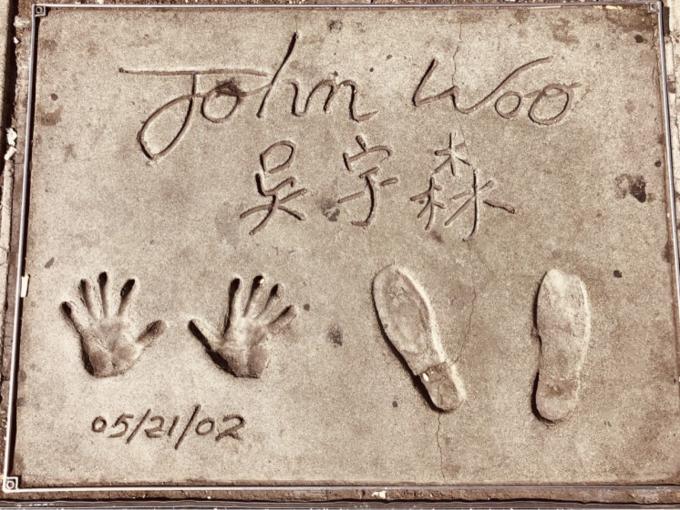 John Woo
吴宇森
05/21/02